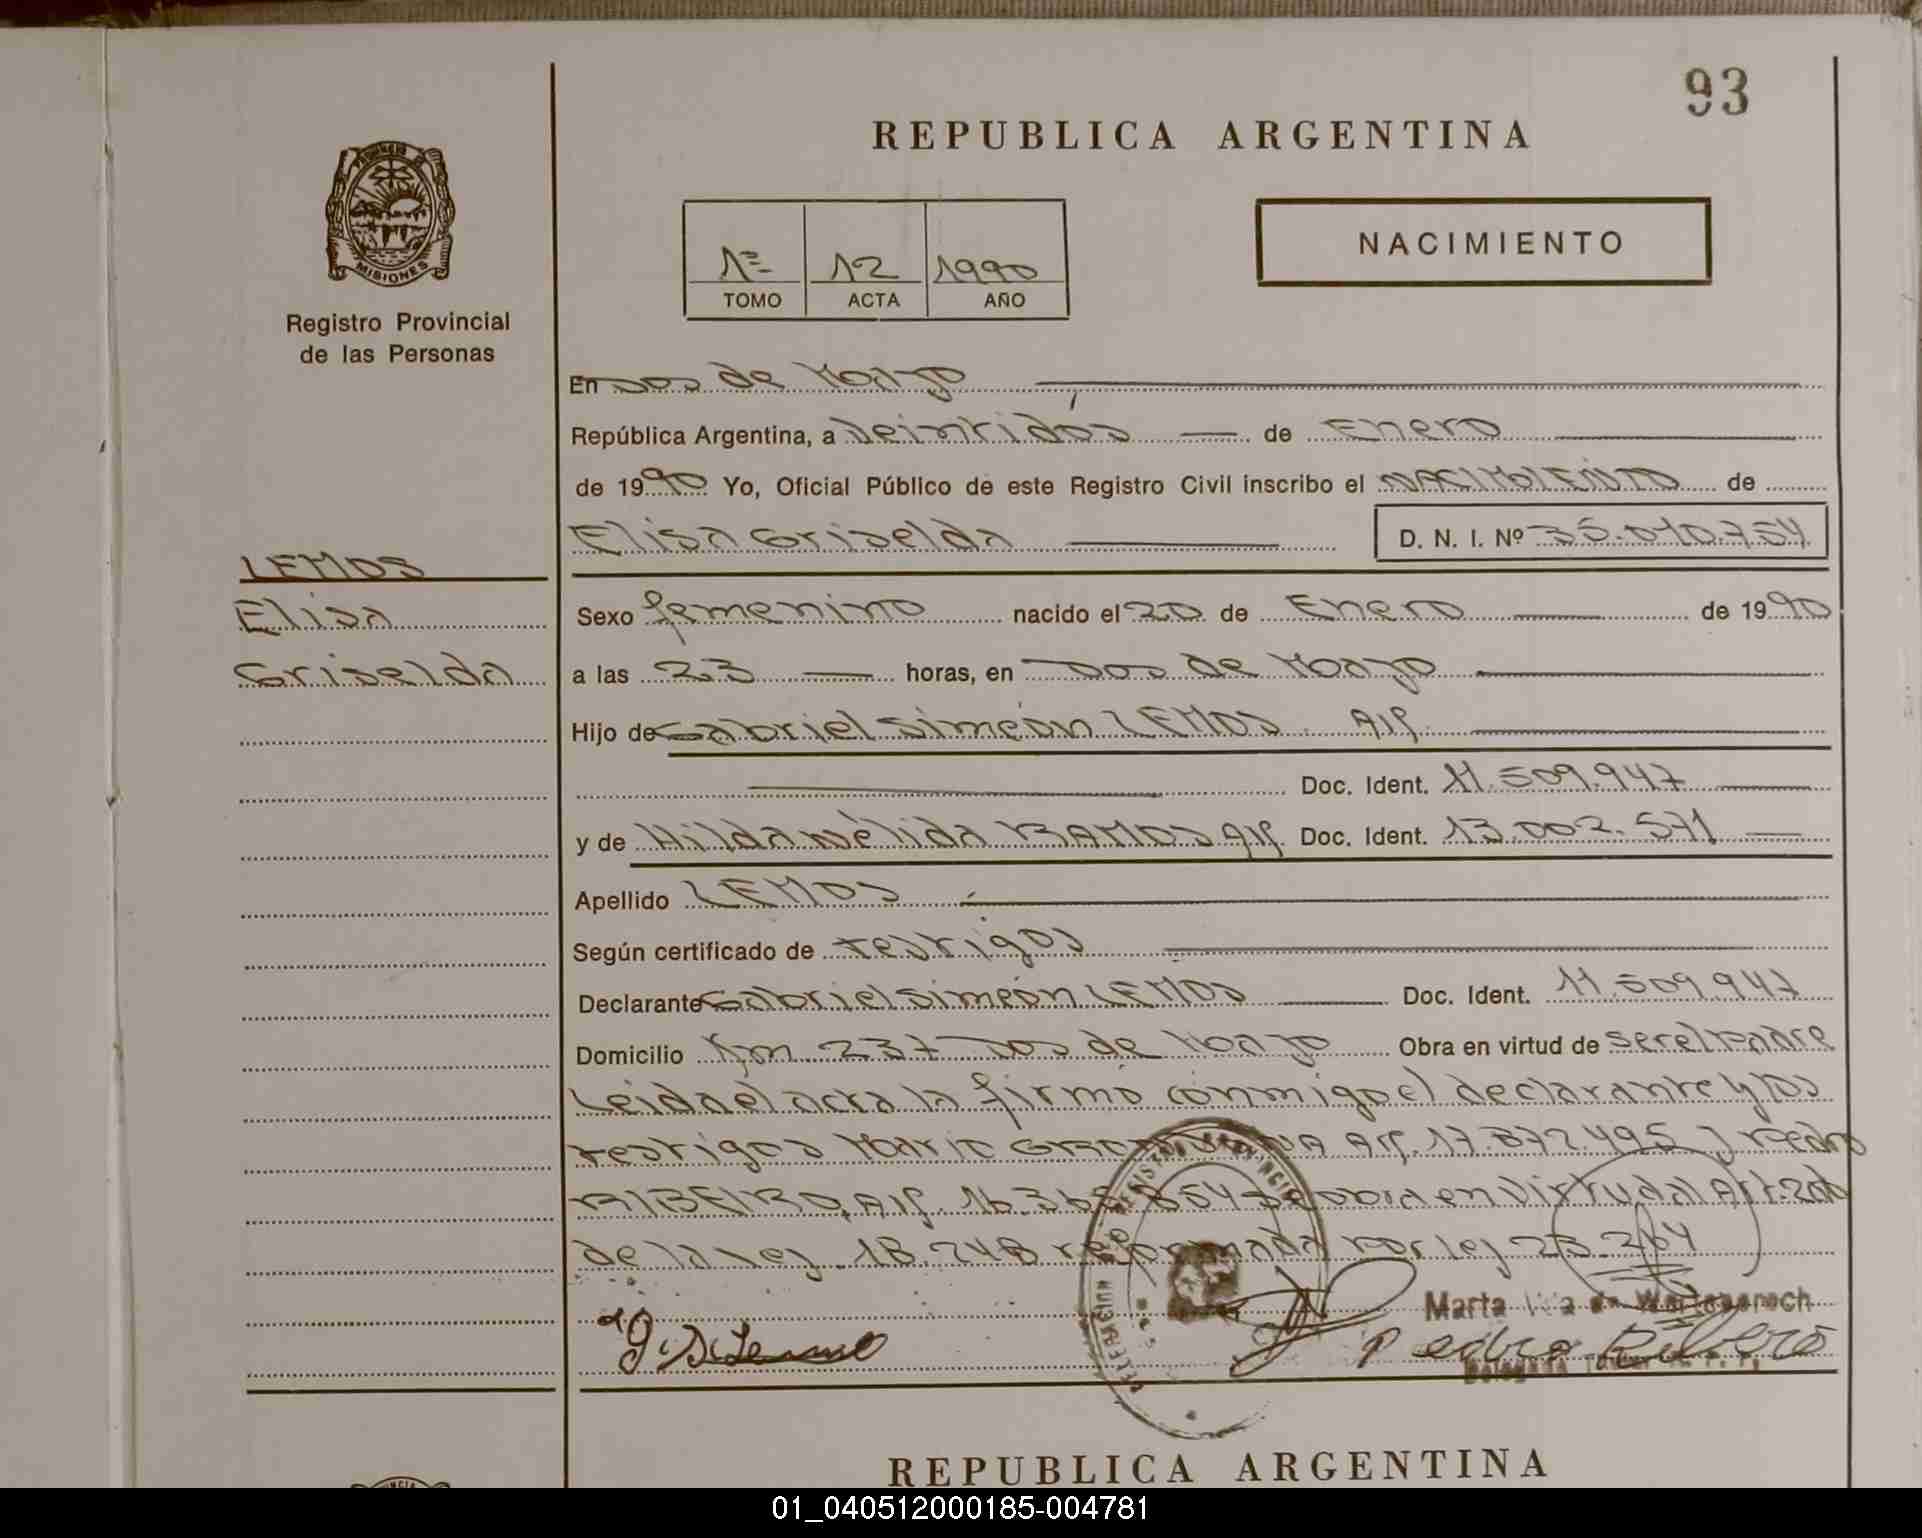 93
REPUBLICA ARGENTINA
PROVINCIA DE
MISIONES
Registro Provincial
de las Personas
1º 12 1990
TOMO ACTA AÑO
NACIMIENTO
En Dos de Mayo
República Argentina, a Veintidós de Enero
de 1990 Yo, Oficial Público de este Registro Civil inscribo el NACIMIENTO de
Elisa Griselda D. N. I. Nº 35.010.754
LEMOS
Elisa
Griselda
Sexo femenino nacido el 20 de Enero de 1990
a las 23 horas, en Dos de Mayo
Hijo de Gabriel Simeón LEMOS Arg.
Doc. Ident. 11.509.947
y de Hilda Nélida RAMOS Arg. Doc. Ident. 13.002.571
Apellido LEMOS
Según certificado de testigos
Declarante Gabriel Simeón LEMOS Doc. Ident. 11.509.947
Domicilio Km 237 Dos de Mayo Obra en virtud de ser el Padre
Leida el acta la firmó conmigo el declarante y los
testigos Mario Arg. 17.872.495 y Pedro
RIBEIRO, Arg. 16.365.854 se obra en virtud al Art.
de la ley 18.248 reformada por ley 23.264
Marta de
G. S. Lemos Pedro Ribero
REPUBLICA ARGENTINA
01_040512000185-004781